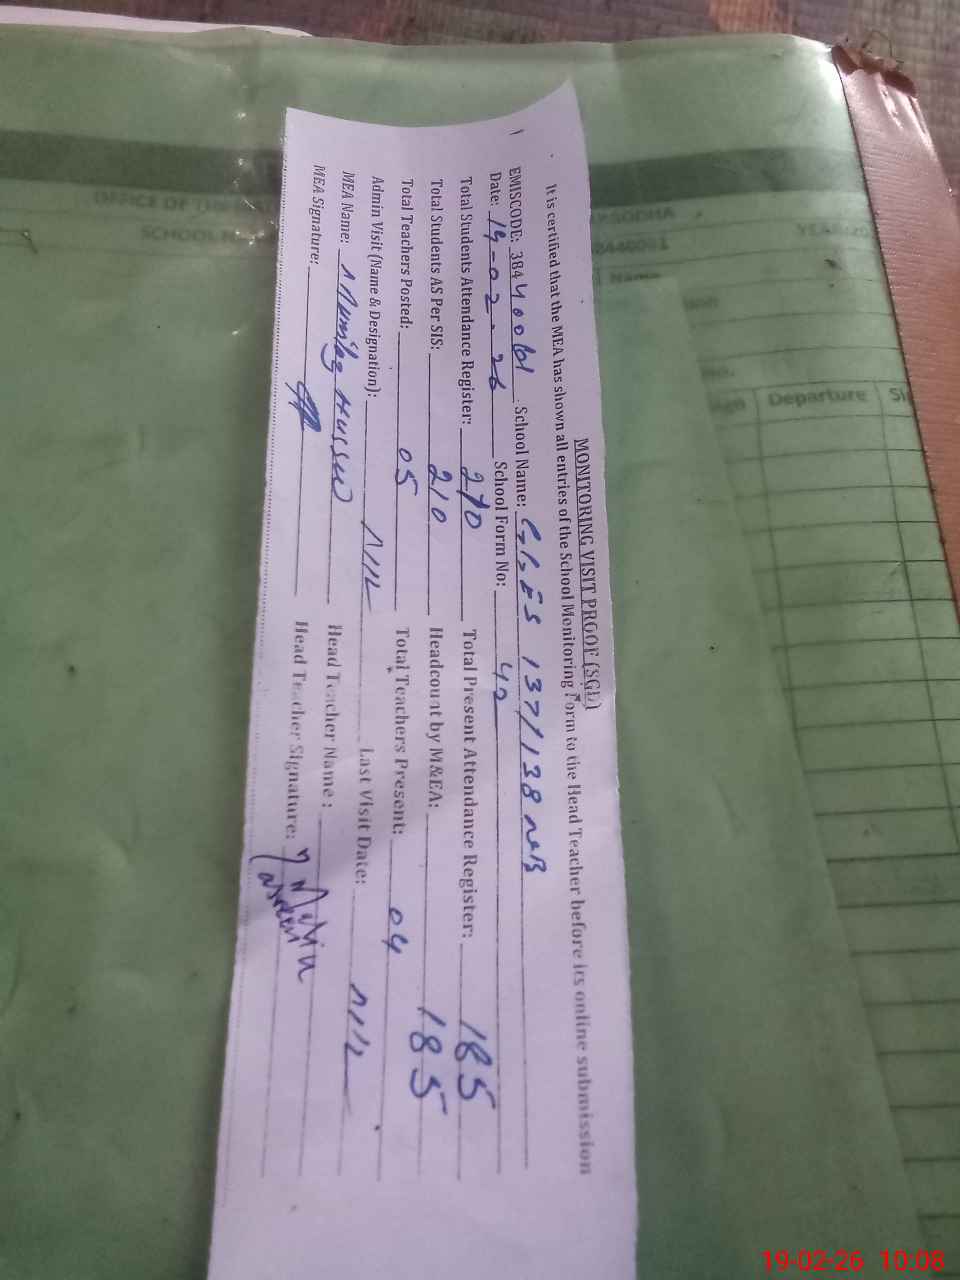 MONITORING VISIT PROOF (SGD)
It is certified that the MEA has shown all entries of the School Monitoring Form to the Head Teacher before its online submission
EMISCODE: 384 School Name: 137/138 NB
Date: 19-02-26 School Form No: 42
Total Students Attendance Register: 210 Total Present Attendance Register: 185
Total Students AS Per SIS: 210 Headcount by M&EA: 185
Total Teachers Posted: 05 Total Teachers Present: 04
Admin Visit (Name & Designation): Nil Last Visit Date: Nil
MEA Name: Head Teacher Name :
MEA Signature: Head Teacher Signature:
OFFICE OF THE
SCHOOL
Departure
19-02-26 10:08